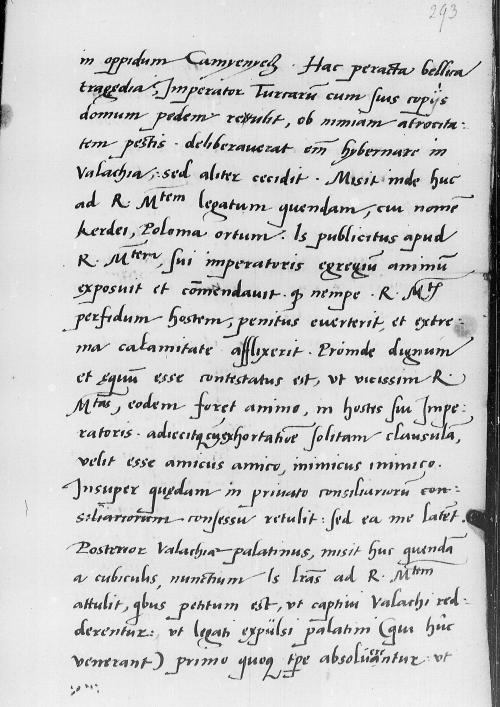 293
in oppidum Camyenyecz. Hac peracta bellica
tragedia, Imperator Turcarū cum suis copijs
domum pedem retulit, ob nimiam atrocita-
tem pestis. deliberauerat em̄ hybernare in
Valachia, sed aliter cecidit. Misit inde huc
ad R. Mtem legatum quendam, cui nomē
kerdei, Polonia ortum. Is publicitus apud
R. Mtem, sui imperatoris egregiū animū
exposuit et com̄endauit. q nempe R. Mts
perfidum hostem, penitus euerterit, et extre-
ma calamitate afflixerit. Proinde dignum
et equū esse contestatus est, vt vicissim R.
Mtas, eodem foret animo, in hostes sui Impe-
ratoris. adiecitq exhortatiōe solitam clausulā,
velit esse amicus amico, inimicus inimico.
Insuper quędam in priuato consiliariorū con-
siliariorum consessu retulit: sed ea me latēt.
Posterior Valachiae palatinus, misit huc quendā
a cubiculis, nunctium Is lr̄as ad R. Mtem
attulit, qbus petitum est, vt captiui Valachi red-
derentur: vt legati expulsi palatini (qui hūc
venerant) primo quoq tp̄e absoluerentur: vt